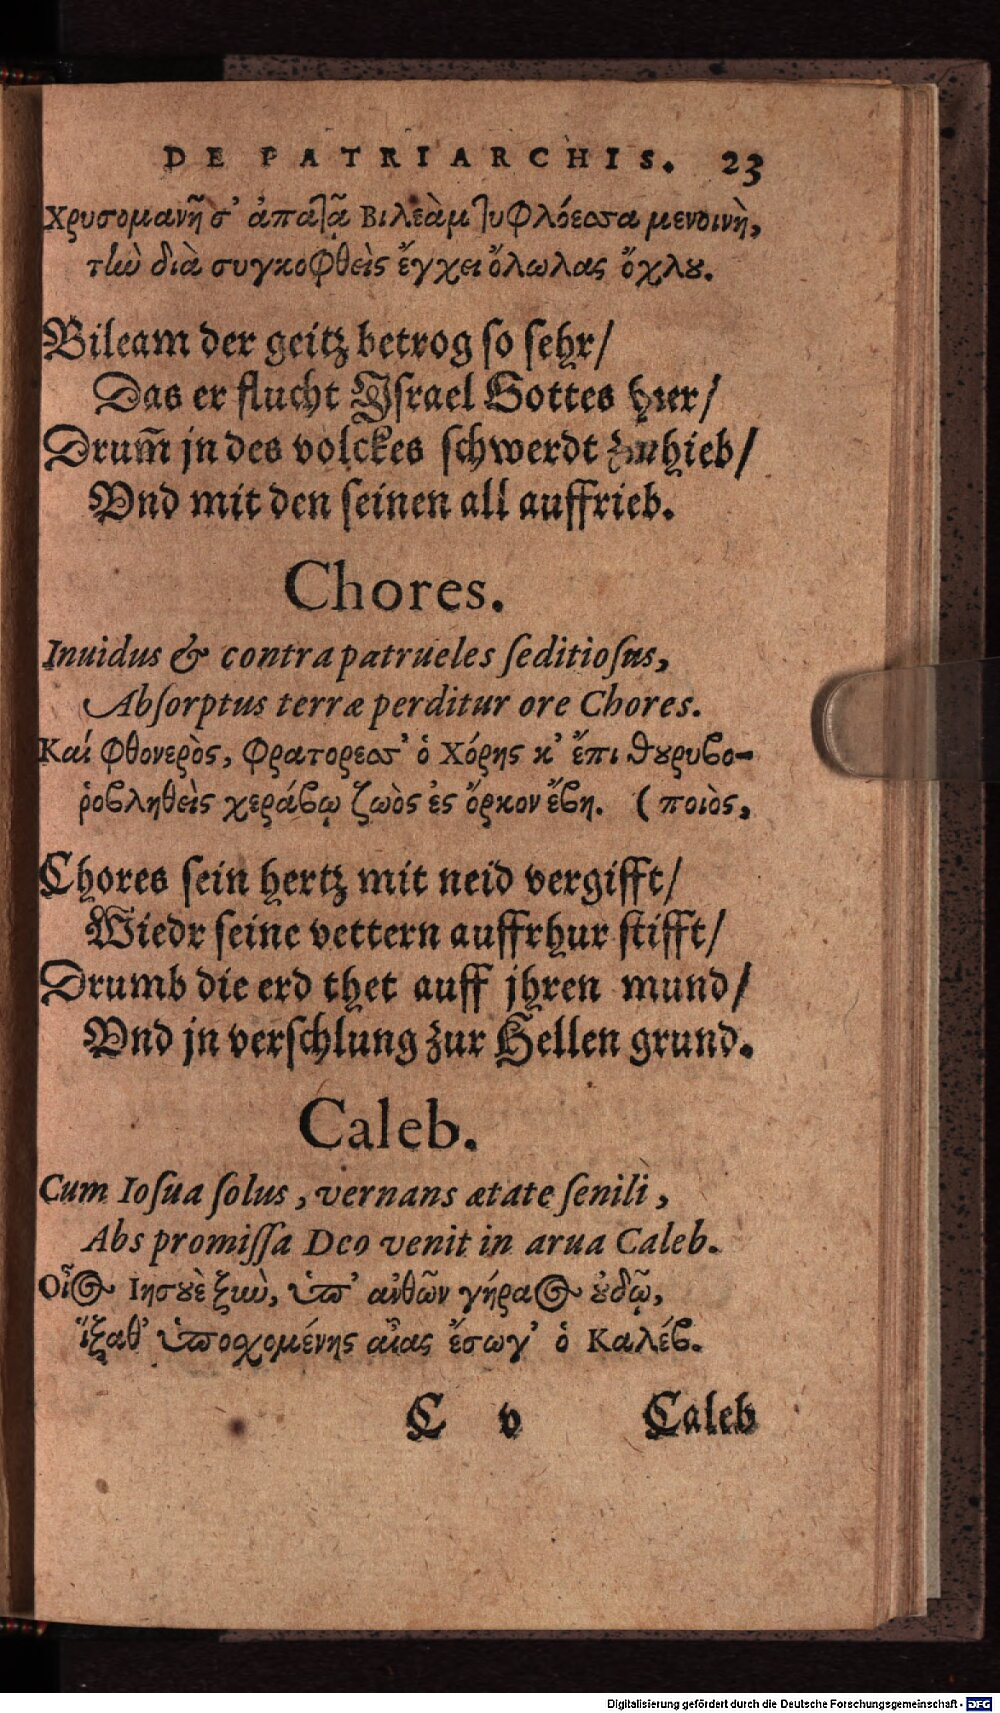 DE PATRIARCHIS. 23
Χρυσομανῆ σ' ἀπατᾷ Βιλεὰμ τυφλόεσσα μενοινὴ,
τὼ διὰ συγκοφθεὶς ἔγχει ὄλωλας ὄχλου.
Bileam der geitz betrog so sehr/
Das er flucht Israel Gottes
Drum̃ jn des volckes schwerdt zuhieb/
Vnd mit den seinen all auffrieb.
Chores.
Inuidus & contra patrueles seditiosus,
Absorptus terræ perditur ore Chores.
Καί φθονερὸς, ὁ Χόρης κ' ἔπι
ῥοβληθεὶς ζωὸς ἐς ὄρκον ἔβη. (ποιὸς,
Chores sein hertz mit neid vergifft/
Wiedr seine vettern auffrhur stifft/
Drumb die erd thet auff jhren mund/
Vnd jn verschlung zur Hellen grund.
Caleb.
Cum Iosua solus, vernans ætate senili,
Abs promissa Deo venit in arua Caleb.
Οἶος Ἰησουὲ ξὺν, ὑπ' ἀνθῶν γήραος οὐδῷ,
ἵξαθ' ὑποσχομένης αἴας ἔσωγ' ὁ Καλέβ.
C v Caleb
Digitalisierung gefördert durch die Deutsche Forschungsgemeinschaft - DFG